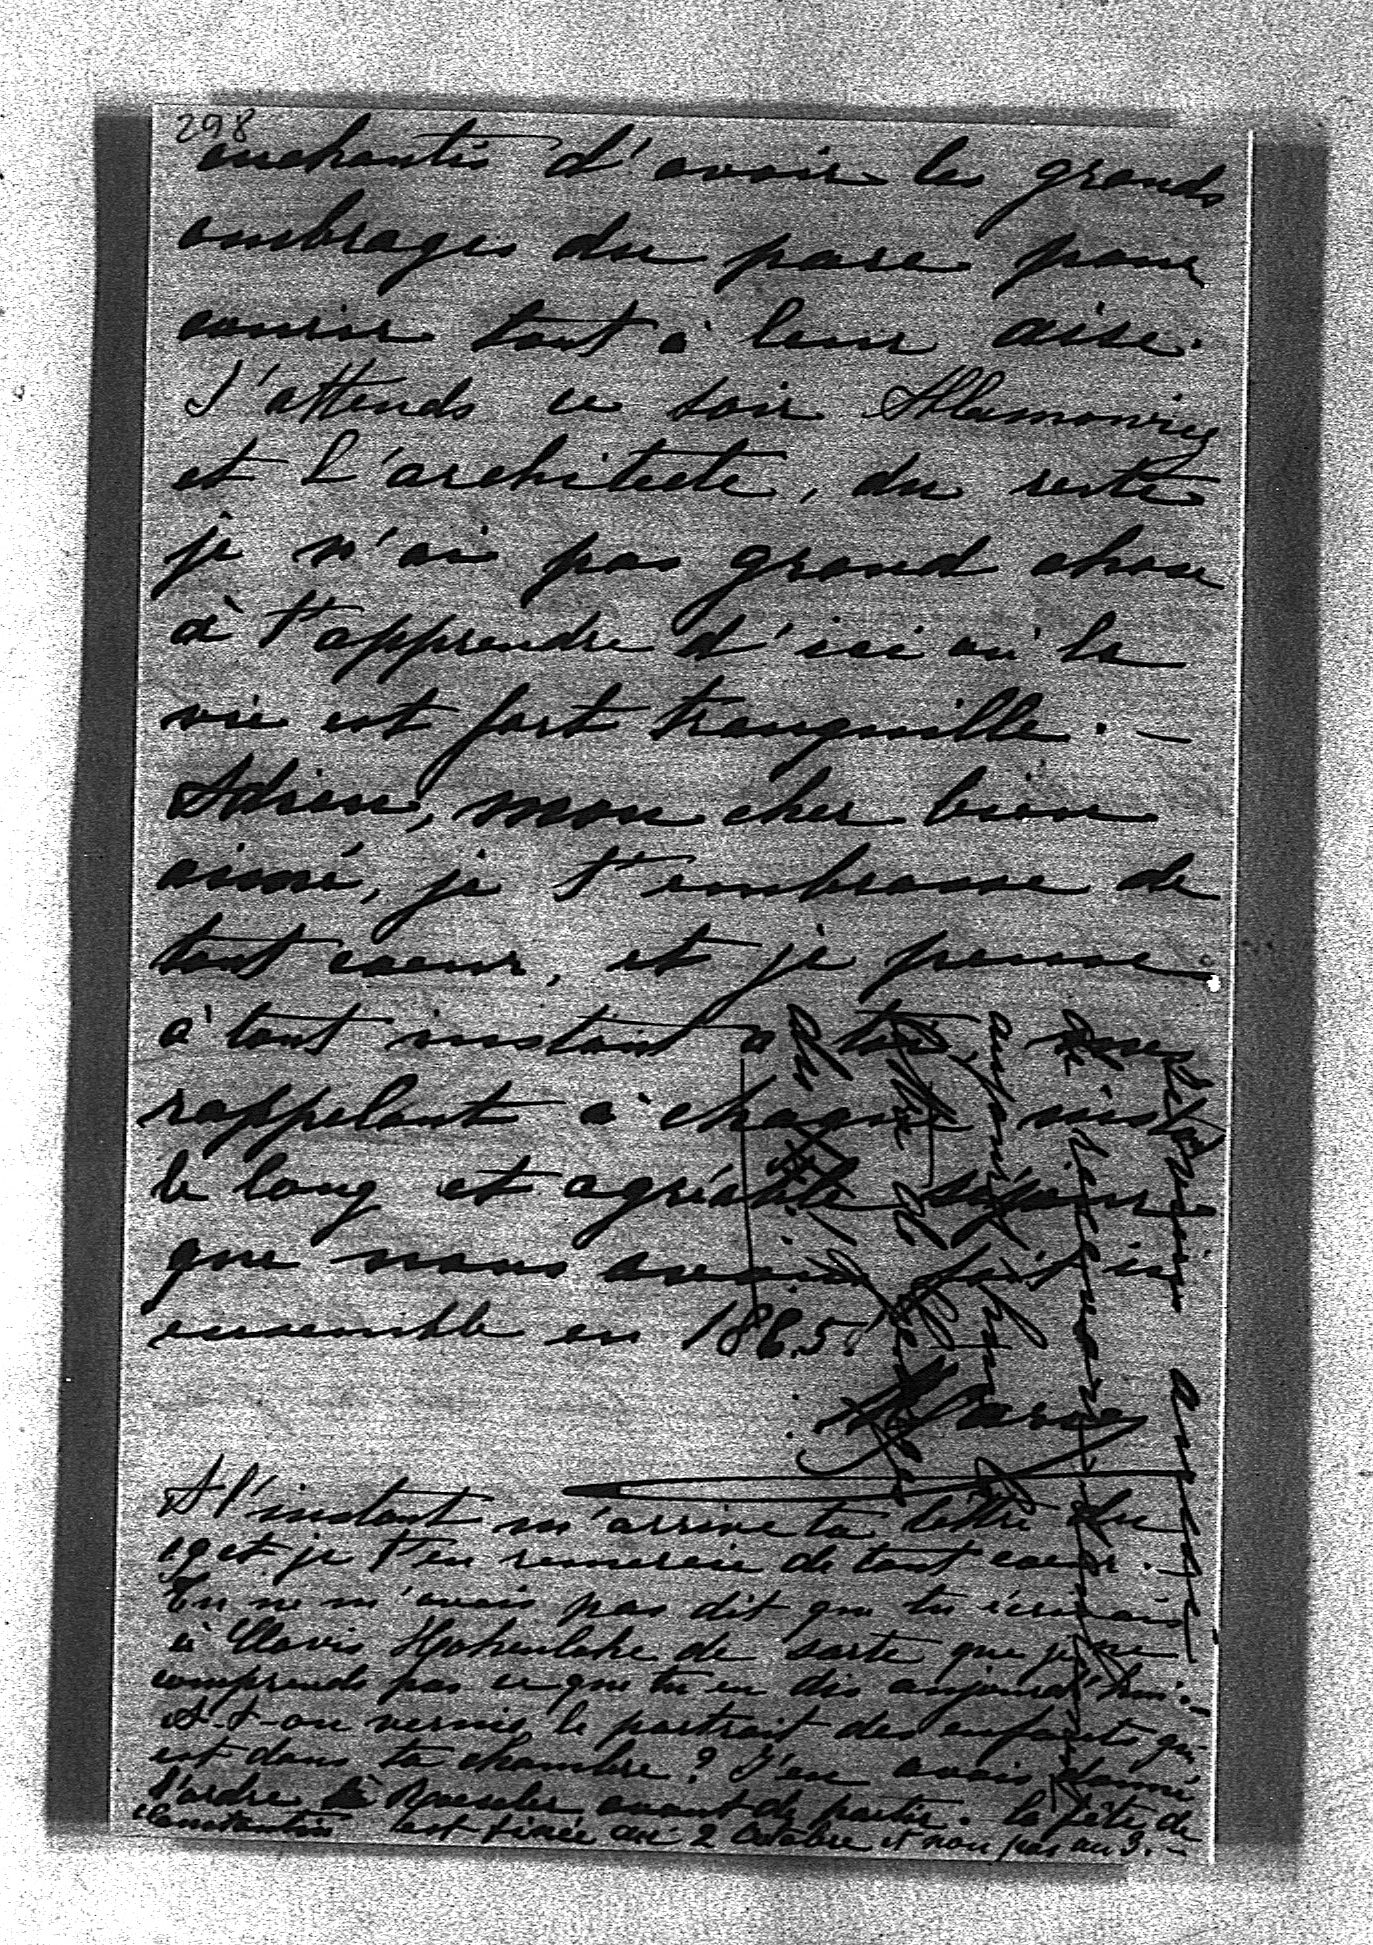 298
enchantés d'avoir les grands
ombrages du parc pour
courir tout à leur aise.
J'attends ce soir
et l'architecte, du reste
je n'ai pas grand chose
à t'apprendre d'ici où la
vie est fort tranquille. —
Adrien, mon cher bien
aimé, je t'embrasse de
tout coeur, et je pense
à tout instant à toi, me
rappelant à chaque instant
le long et agréable séjour
que nous avons fait ici
ensemble en 1865.
Marie
A l'instant m'arrive ta lettre du
19 et je t'en remercie de tout coeur. —
Tu ne m'avais pas dit que tu écrivais
à Clovis Hohenlohe de sorte que je ne
comprends pas ce que tu en dis aujourd'hui. —
A-t-on vernis le portrait des enfants qui
est dans ta chambre? J'en avais donné
l'ordre à avant de partir. la fête de
Constantin est fixée au 2 Octobre et non pas au 3. —